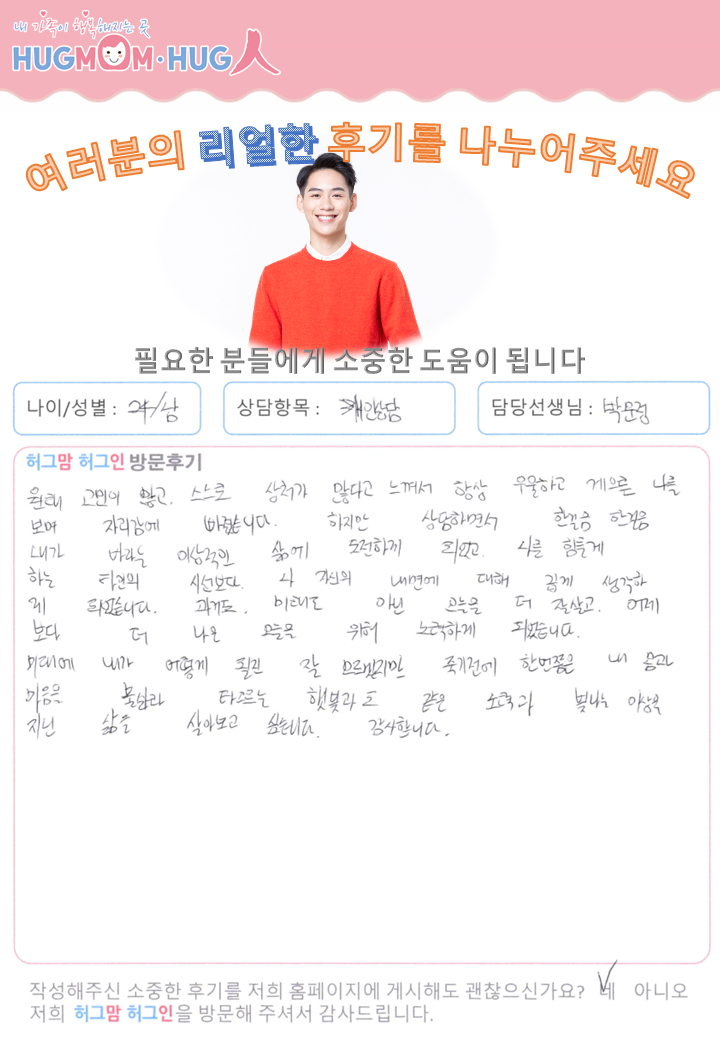 내 가족이 행복해지는 곳
HUGMOM·HUG人
여러분의 리얼한 후기를 나누어주세요
필요한 분들에게 소중한 도움이 됩니다
나이/성별 : 24/남
상담항목 : 개인상담
담당선생님 : 박문경
허그맘 허그인 방문후기
원래 고민이 많고. 스스로 상처가 많다고 느껴서 항상 우울하고 게으른 나를
보며 자괴감에 빠졌습니다. 하지만 상담하면서 한걸음 한걸음
내가 바라는 이상적인 삶에 도전하게 되었고. 나를 힘들게
하는 타인의 시선보다. 나 자신의 내면에 대해 깊게 생각하
게 되었습니다. 과거도, 미래도 아닌 오늘을 더 잘살고. 어제
보다 더 나은 오늘을 위해 노력하게 되었습니다.
미래에 내가 어떻게 될진 잘 모르겠지만 죽기전에 한번쯤은 내 몸과
마음을 불살라 타오르는 햇빛과도 같은 노력과 빛나는 야망을
지닌 삶을 살아보고 싶습니다. 감사합니다.
작성해주신 소중한 후기를 저희 홈페이지에 게시해도 괜찮으신가요? 네 아니오
저희 허그맘 허그인을 방문해 주셔서 감사드립니다.